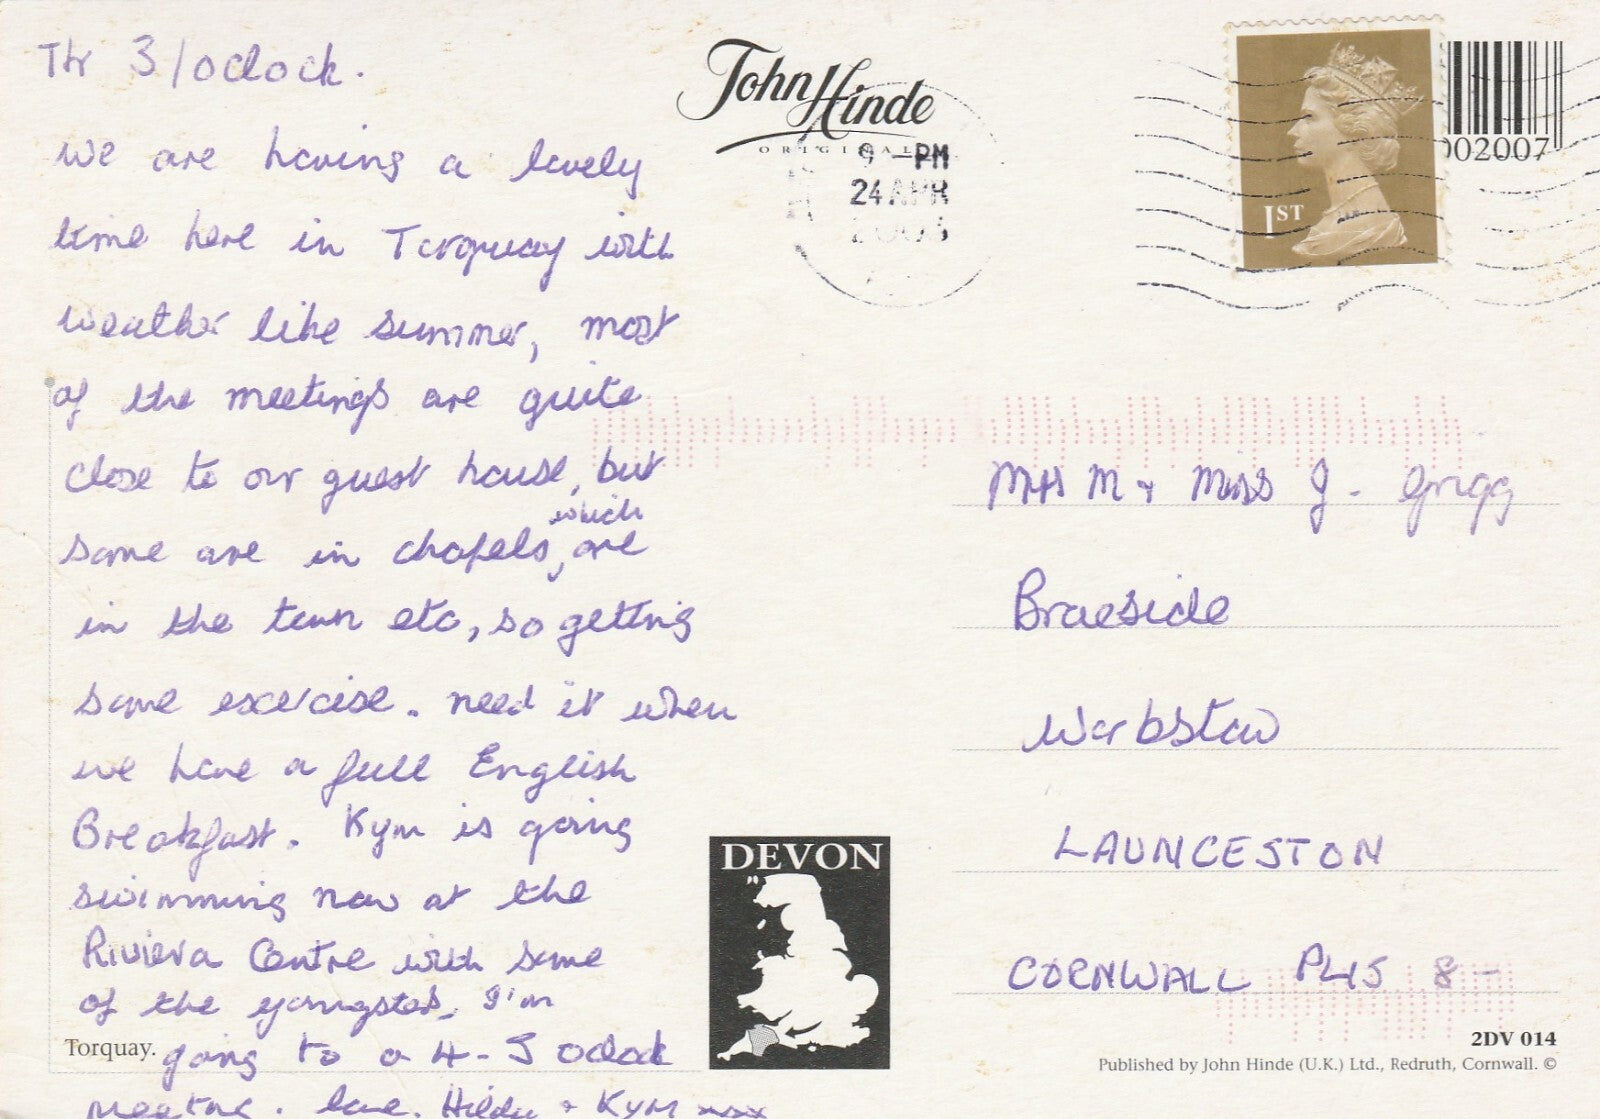 Thr 3/oclock.
we are having a lovely
time here in Torquay with
weather like summer, most
of the meetings are quite
close to our guest house, but
some are in chapels, which are
in the town etc, so getting
some exercise. need it when
we have a full English
Breakfast. Kym is going
swimming now at the
Riviera Centre with some
of the youngsters. I'm
going to a 4-5 oclock
meeting. love. Hilda + Kym xxxx
Torquay.
John Hinde
ORIGINAL
9-PM
24 APR
1ST
002007
Mrs M + Miss J. Grigg
Braeside
Warbstow
LAUNCESTON
CORNWALL PL15 8-
DEVON
2DV 014
Published by John Hinde (U.K.) Ltd., Redruth, Cornwall. ©